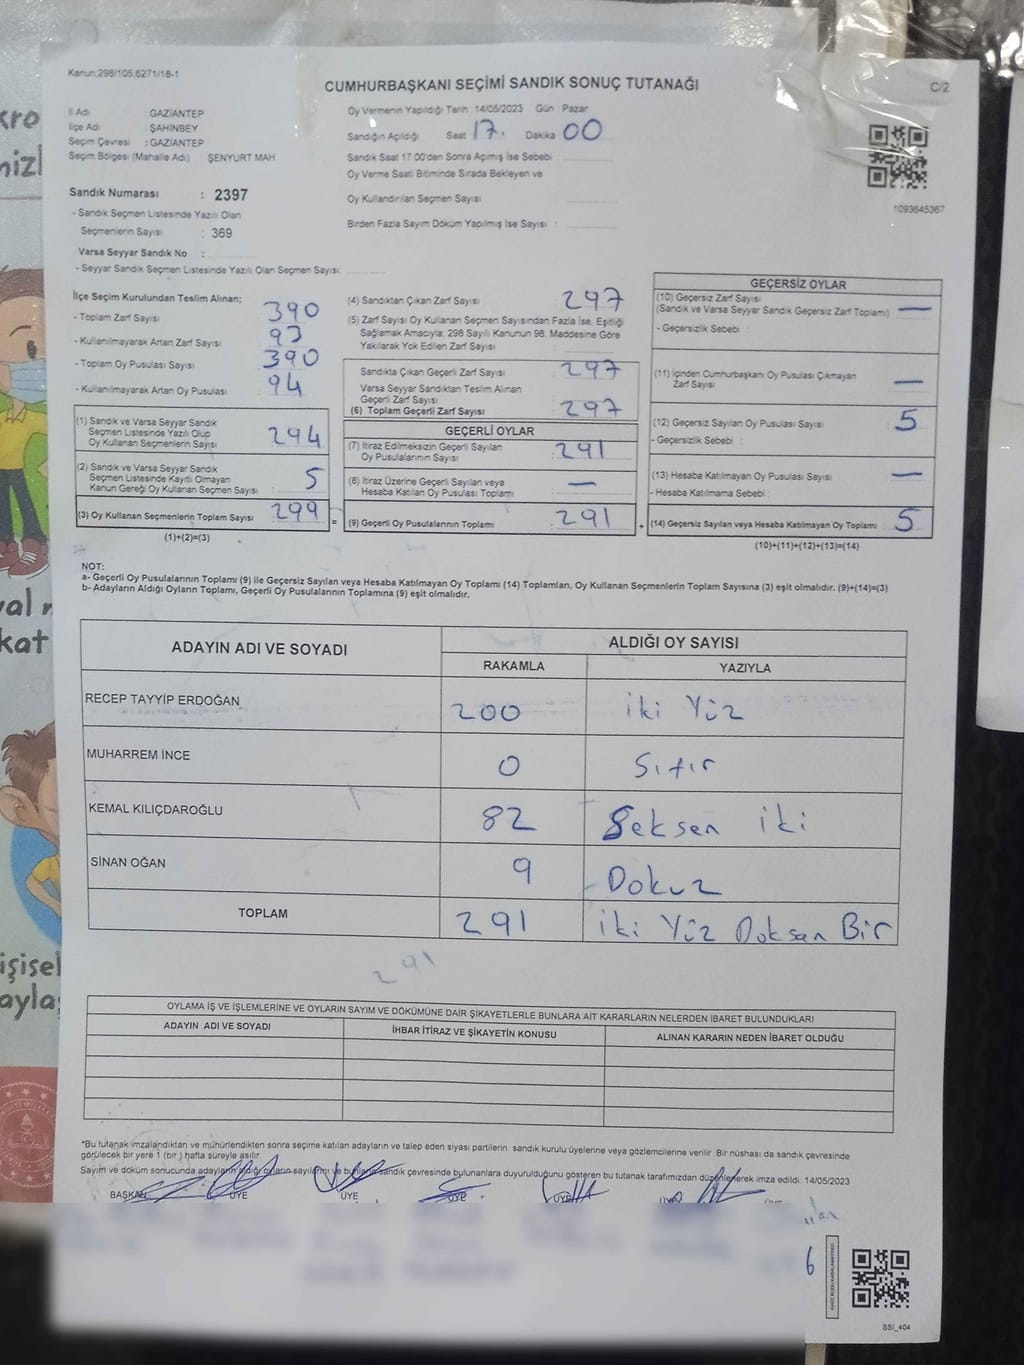 Kanun:298/105;6271/18-1
CUMHURBAŞKANI SEÇİMİ SANDIK SONUÇ TUTANAĞI
C/2
İl Adı : GAZİANTEP
İlçe Adı : ŞAHİNBEY
Seçim Çevresi : GAZİANTEP
Seçim Bölgesi (Mahalle Adı) : ŞENYURT MAH
Sandık Numarası : 2397
- Sandık Seçmen Listesinde Yazılı Olan
Seçmenlerin Sayısı : 369
Varsa Seyyar Sandık No :
- Seyyar Sandık Seçmen Listesinde Yazılı Olan Seçmen Sayısı:
Oy Vermenin Yapıldığı Tarih : 14/05/2023 Gün : Pazar
Sandığın Açıldığı Saat 17. Dakika 00
Sandık Saat 17:00'den Sonra Açımış İse Sebebi
Oy Verme Saati Bitiminde Sırada Bekleyen ve
Oy Kullandırılan Seçmen Sayısı
Birden Fazla Sayım Döküm Yapılmış İse Sayısı :
1093645367
İlçe Seçim Kurulundan Teslim Alınan;
- Toplam Zarf Sayısı 390
- Kullanılmayarak Artan Zarf Sayısı 93
- Toplam Oy Pusulası Sayısı 390
- Kullanılmayarak Artan Oy Pusulası 94
(1) Sandık ve Varsa Seyyar Sandık
Seçmen Listesinde Yazılı Olup
Oy Kullanan Seçmenlerin Sayısı 294
(2) Sandık ve Varsa Seyyar Sandık
Seçmen Listesinde Kayıtlı Olmayan
Kanun Gereği Oy Kullanan Seçmen Sayısı 5
(3) Oy Kullanan Seçmenlerin Toplam Sayısı 299
(1)+(2)=(3)
(4) Sandıktan Çıkan Zarf Sayısı 297
(5) Zarf Sayısı Oy Kullanan Seçmen Sayısından Fazla İse, Eşitliği
Sağlamak Amacıyla; 298 Sayılı Kanunun 98. Maddesine Göre
Yakılarak Yok Edilen Zarf Sayısı
Sandıkta Çıkan Geçerli Zarf Sayısı 297
Varsa Seyyar Sandıktan Teslim Alınan
Geçerli Zarf Sayısı
(6) Toplam Geçerli Zarf Sayısı 297
GEÇERLİ OYLAR
(7) İtiraz Edilmeksizin Geçerli Sayılan
Oy Pusulalarının Sayısı 291
(8) İtiraz Üzerine Geçerli Sayılan veya
Hesaba Katılan Oy Pusulası Toplamı —
= (9) Geçerli Oy Pusulalarının Toplamı 291 +
GEÇERSİZ OYLAR
(10) Geçersiz Zarf Sayısı
(Sandık ve Varsa Seyyar Sandık Geçersiz Zarf Toplamı) —
- Geçersizlik Sebebi :
(11) İçinden Cumhurbaşkanı Oy Pusulası Çıkmayan
Zarf Sayısı —
(12) Geçersiz Sayılan Oy Pusulası Sayısı 5
- Geçersizlik Sebebi :
(13) Hesaba Katılmayan Oy Pusulası Sayısı —
- Hesaba Katılmama Sebebi :
(14) Geçersiz Sayılan veya Hesaba Katılmayan Oy Toplamı 5
(10)+(11)+(12)+(13)=(14)
NOT:
a- Geçerli Oy Pusulalarının Toplamı (9) ile Geçersiz Sayılan veya Hesaba Katılmayan Oy Toplamı (14) Toplamları, Oy Kullanan Seçmenlerin Toplam Sayısına (3) eşit olmalıdır. (9)+(14)=(3)
b- Adayların Aldığı Oyların Toplamı, Geçerli Oy Pusulalarının Toplamına (9) eşit olmalıdır.
ADAYIN ADI VE SOYADI
ALDIĞI OY SAYISI
RAKAMLA YAZIYLA
RECEP TAYYİP ERDOĞAN 200 iki Yüz
MUHARREM İNCE 0 Sıfır
KEMAL KILIÇDAROĞLU 82 Seksen iki
SİNAN OĞAN 9 Dokuz
TOPLAM 291 iki Yüz Doksan Bir
291
OYLAMA İŞ VE İŞLEMLERİNE VE OYLARIN SAYIM VE DÖKÜMÜNE DAİR ŞİKAYETLERLE BUNLARA AİT KARARLARIN NELERDEN İBARET BULUNDUKLARI
ADAYIN ADI VE SOYADI İHBAR İTİRAZ VE ŞİKAYETİN KONUSU ALINAN KARARIN NEDEN İBARET OLDUĞU
*Bu tutanak imzalandıktan ve mühürlendikten sonra seçime katılan adayların ve talep eden siyasi partilerin sandık kurulu üyelerine veya gözlemcilerine verilir. Bir nüshası da sandık çevresinde
görülecek bir yere 1 (bir) hafta süreyle asılır.
Sayım ve döküm sonucunda adayların aldığı oyların sayılarını ve bunların sandık çevresinde bulunanlara duyurulduğunu gösteren bu tutanak tarafımızdan düzenlenerek imza edildi. 14/05/2023
BAŞKAN ÜYE ÜYE ÜYE ÜYE
6
SSI_404